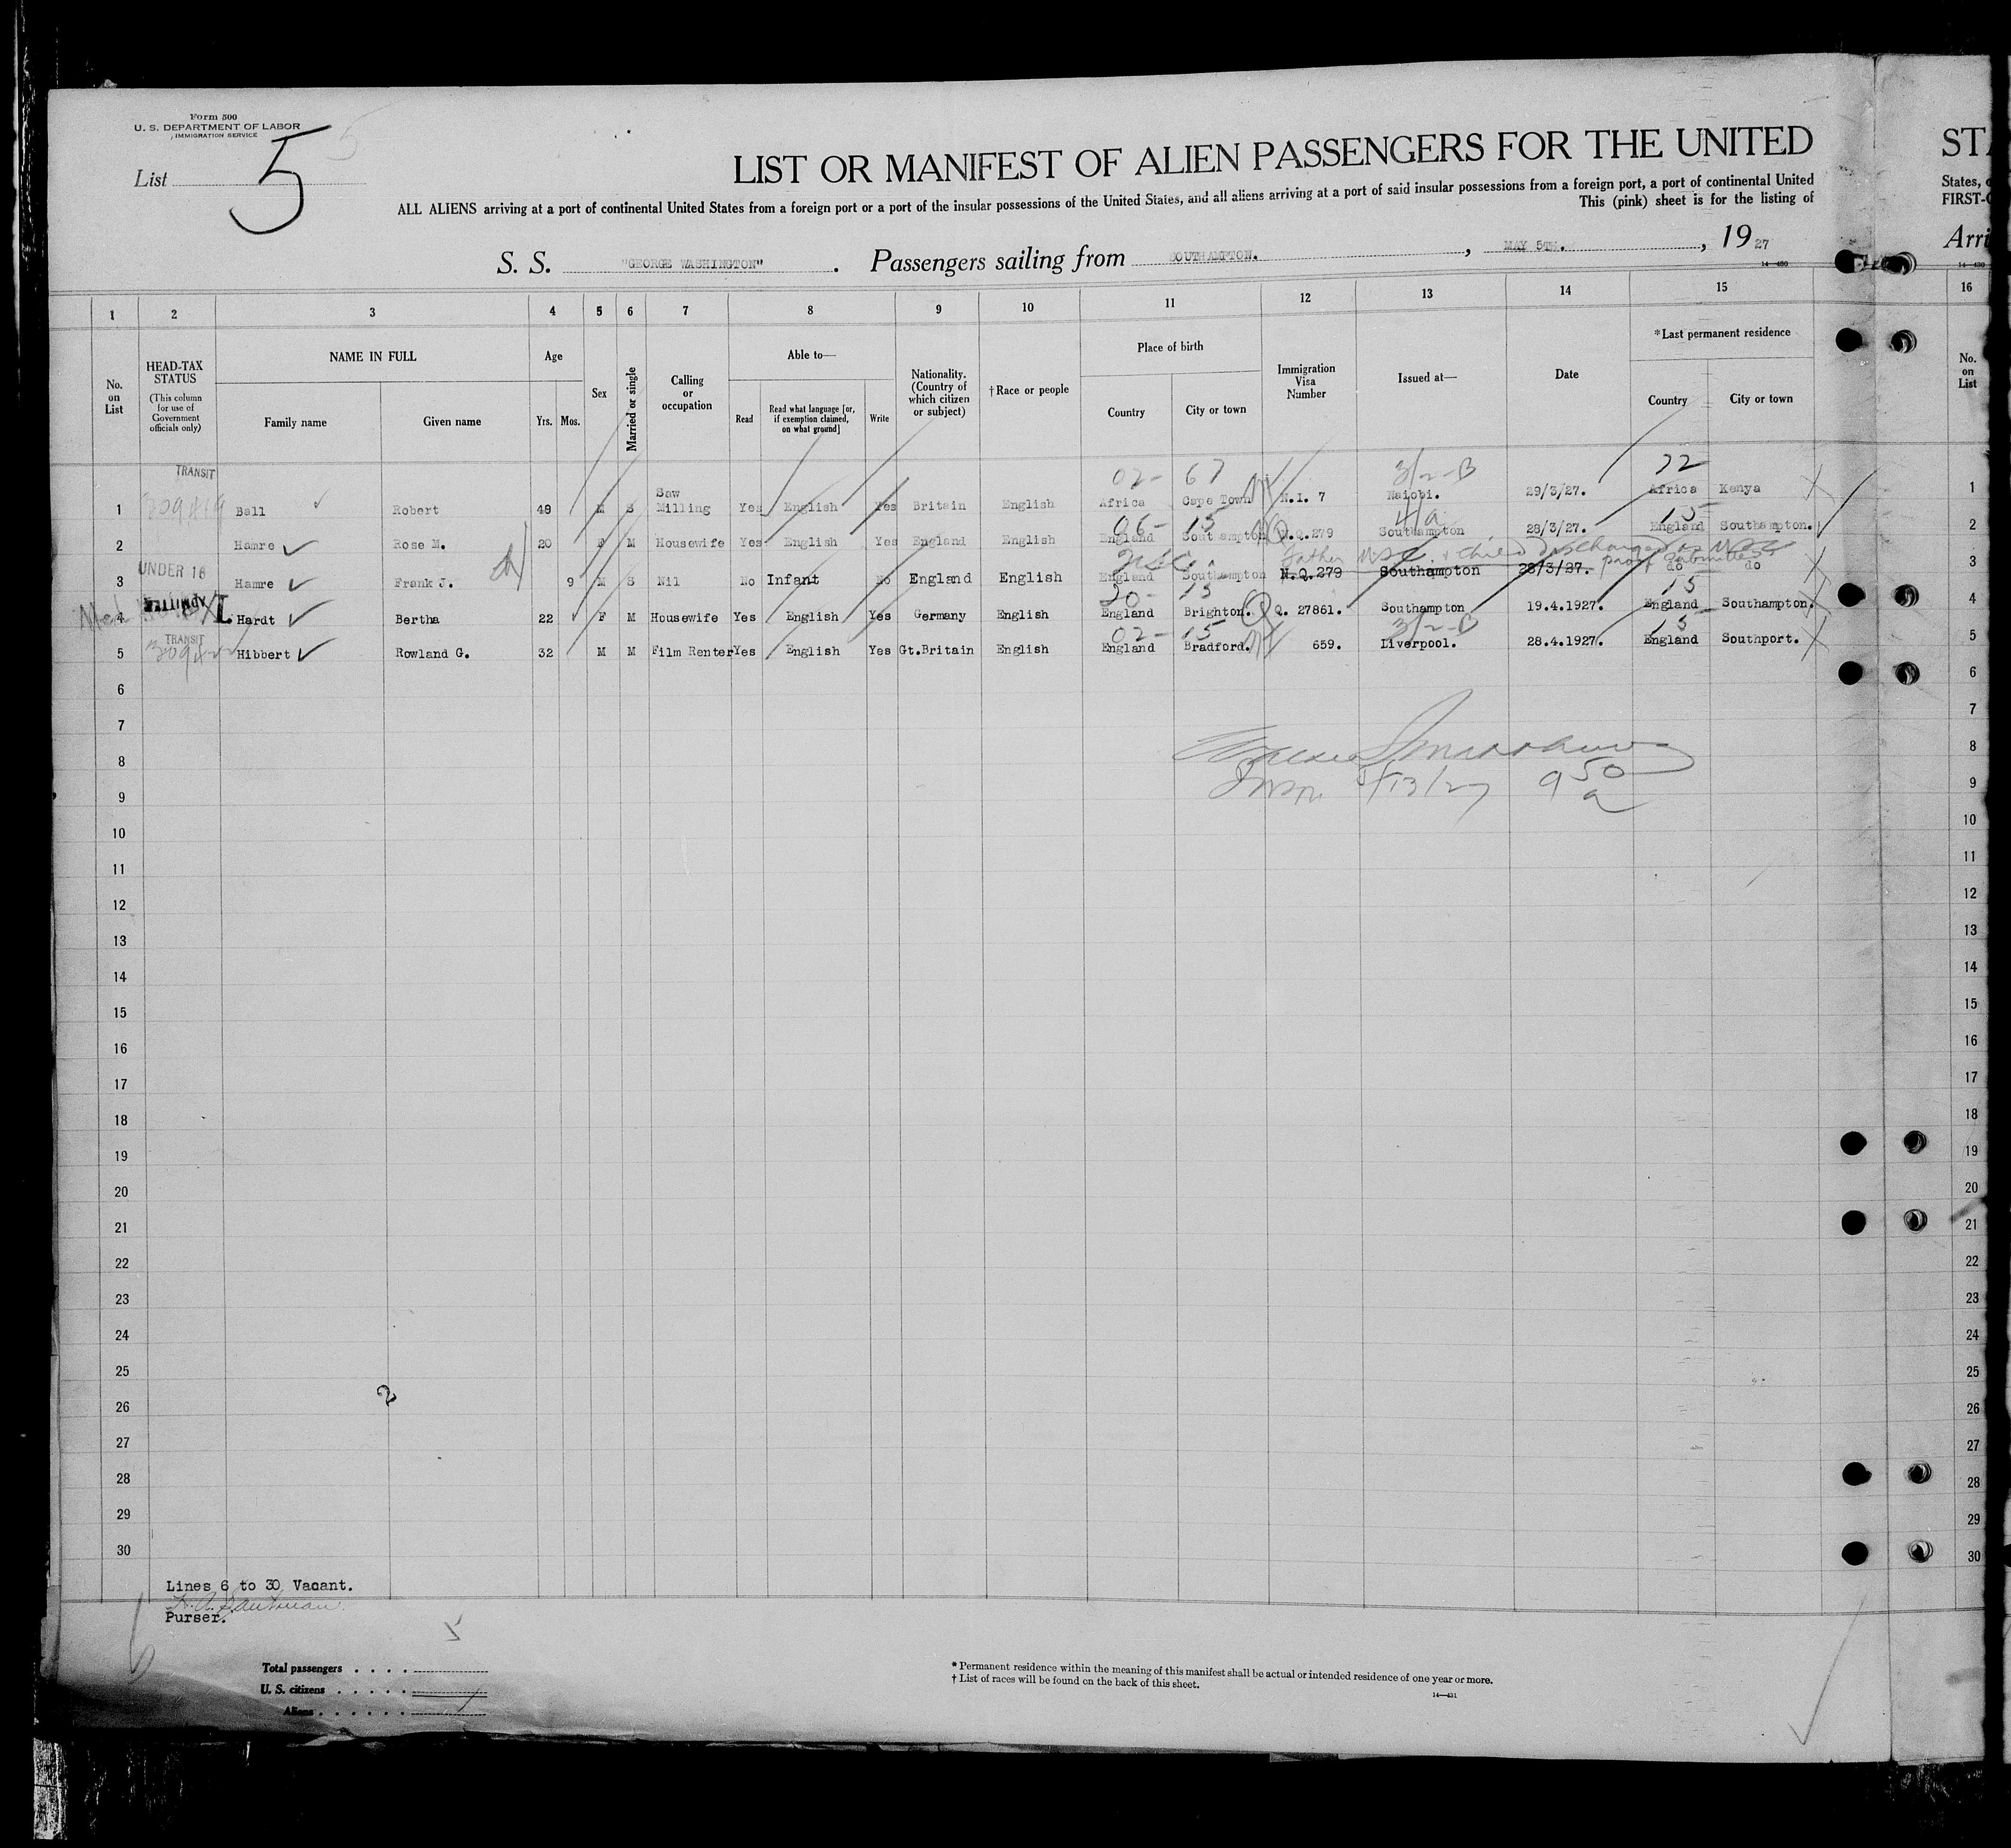 Form 500
U. S. DEPARTMENT OF LABOR
IMMIGRATION SERVICE
List 5
5
LIST OR MANIFEST OF ALIEN PASSENGERS FOR THE UNITED
ALL ALIENS arriving at a port of continental United States from a foreign port or a port of the insular possessions of the United States, and all aliens arriving at a port of said insular possessions from a foreign port, a port of continental United
This (pink) sheet is for the listing of
S. S. "GEORGE WASHINGTON". Passengers sailing from SOUTHAMPTON., MAY 5TH., 1927
14—430
STA
States,
FIRST-C
Arri
14—430
1 2 3 4 5 6 7 8 9 10 11 12 13 14 15 16
No. on List
HEAD-TAX STATUS
(This column for use of Government officials only)
NAME IN FULL
Family name
Given name
Age
Yrs. Mos.
Sex
Married or single
Calling or occupation
Able to—
Read
Read what language [or, if exemption claimed, on what ground]
Write
Nationality. (Country of which citizen or subject)
† Race or people
Place of birth
Country
City or town
Immigration Visa Number
Issued at—
Date
*Last permanent residence
Country
City or town
No. on List
TRANSIT 02- 67 3/2-B 72
1 Ball Robert 49 M S Saw Milling Yes English Yes Britain English Africa Cape Town N.I. 7 Naiobi. 29/3/27. Africa Kenya 1
06- 15 4/a 15
2 Hamre Rose M. 20 F M Housewife Yes English Yes England English England Southampton N.Q.279 Southampton 28/3/27. England Southampton. 2
UNDER 16 USC. Father USC. + child discharged as USC proof submitted
3 Hamre Frank J. 9 M S Nil No Infant No England English England Southampton N.Q.279 Southampton 28/3/27. do do 3
ADMITTED 20- 15 15
4 Hardt Bertha 22 F M Housewife Yes English Yes Germany English England Brighton. Q. 27861. Southampton 19.4.1927. England Southampton. 4
TRANSIT 02- 15 3/2-B 15
5 Hibbert Rowland G. 32 M M Film Renter Yes English Yes Gt.Britain English England Bradford. 659. Liverpool. 28.4.1927. England Southport. 5
6 6
7 7
8 8
5/13/27 9 50 a
9 9
10 10
11 11
12 12
13 13
14 14
15 15
16 16
17 17
18 18
19 19
20 20
21 21
22 22
23 23
24 24
25 25
2
26 26
27 27
28 28
29 29
30 30
Lines 6 to 30 Vacant.
Purser.
5
Total passengers . . . .
U. S. citizens . . . . .
Aliens . . . . . .
* Permanent residence within the meaning of this manifest shall be actual or intended residence of one year or more.
† List of races will be found on the back of this sheet.
14—431